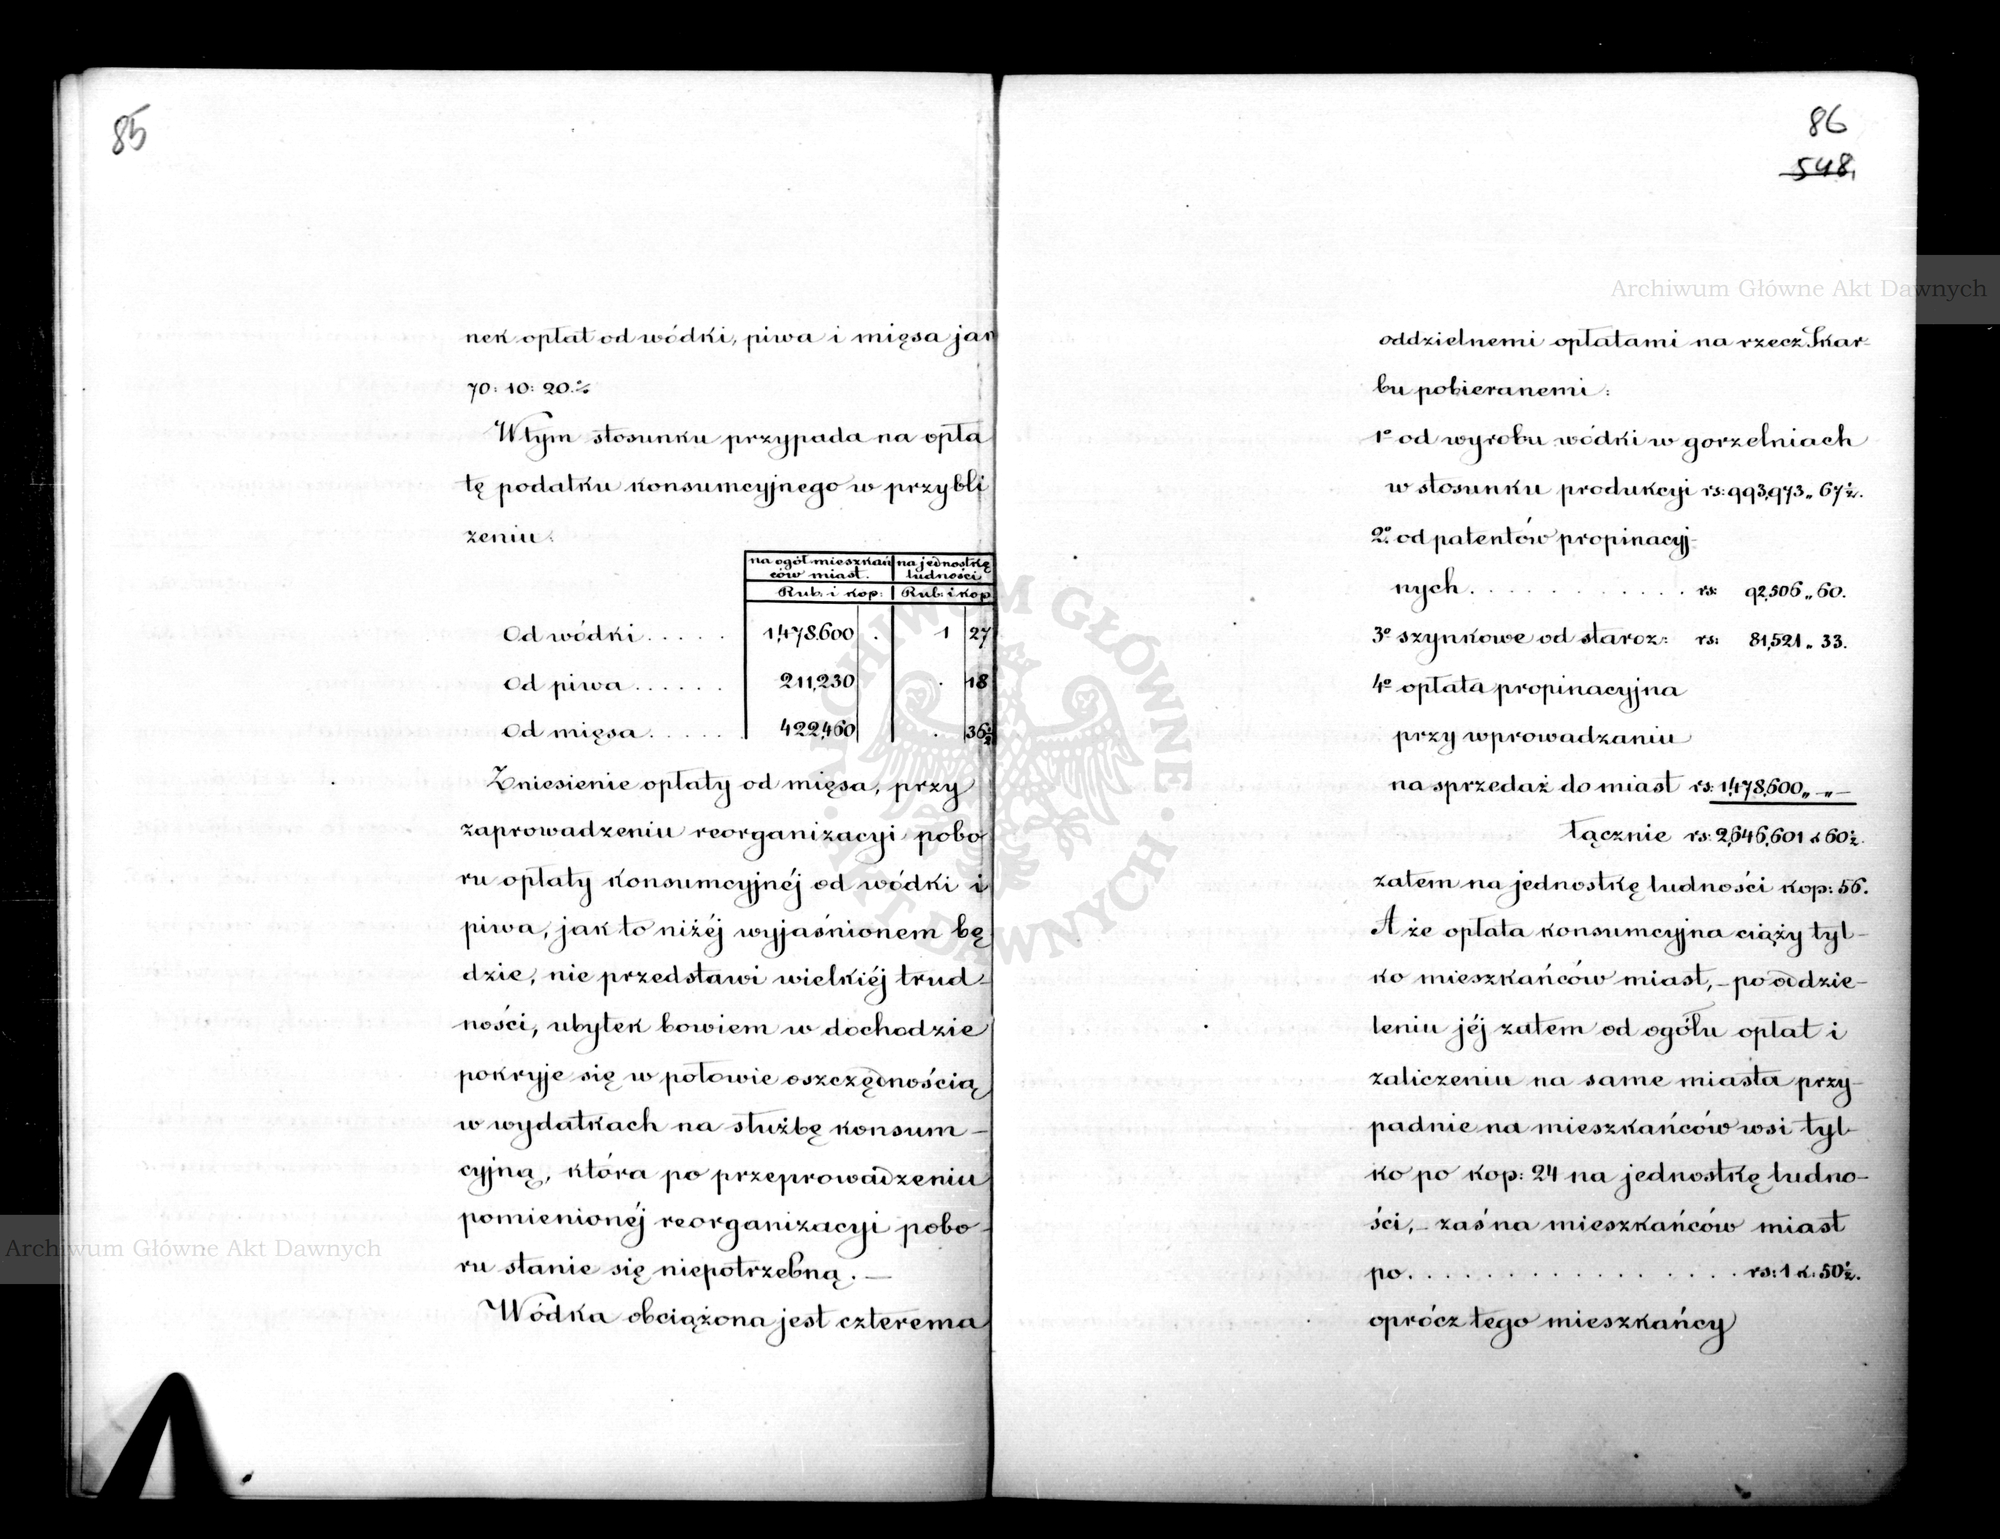 85
nek opłat od wódki, piwa i mięsa jak
70: 10: 20.%
W tym stosunku przypada na opła
tę podatku konsumcyjnego w przybli
żeniu:
na ogół mieszkań na jednostkę
ców miast. ludności
Rub: i kop: Rub: i kop
Od wódki..... 1,478.600 . 1 27
Od piwa...... 211,230 . 18
Od mięsa..... 422,460 . 36½
Zniesienie opłaty od mięsa, przy
zaprowadzeniu reorganizacyi pobo
ru opłaty konsumcyjnéj od wódki i
piwa, jak to niżéj wyjaśnionem bę
dzie, nie przedstawi wielkiéj trud-
ności, ubytek bowiem w dochodzie
pokryje się w połowie oszczędnością
w wydatkach na służbę konsum-
cyjną, która po przeprowadzeniu
pomienionéj reorganizacyi pobo-
ru stanie się niepotrzebną.—
Wódka obciążona jest czterema
86
548,
oddzielnemi opłatami na rzecz Skar-
bu pobieranemi:
1º od wyrobu wódki w gorzelniach
w stosunku produkcyi rs: 993,973 „ 67½.
2º od patentów propinacyj-
nych............ rs: 92,506 „ 60.
3º szynkowe od staroz: rs: 81,521 „ 33.
4º opłata propinacyjna
przy wprowadzaniu
na sprzedaż do miast rs: 1,478,600 „ -„-
Łącznie rs: 2,646,601 k 60½.
zatem na jednostkę ludności kop: 56.
A że opłata konsumcyjna ciąży tyl-
ko mieszkańców miast,- po oddzie-
leniu jéj zatem od ogółu opłat i
zaliczeniu na same miasta przy-
padnie na mieszkańców wsi tyl-
ko po kop: 24 na jednostkę ludno-
ści,- zaś na mieszkańców miast
po.................. rs: 1 k: 50½.
oprócz tego mieszkańcy
Archiwum Główne Akt Dawnych
Archiwum Główne Akt Dawnych
ARCHIWUM GŁÓWNE · AKT DAWNYCH ·